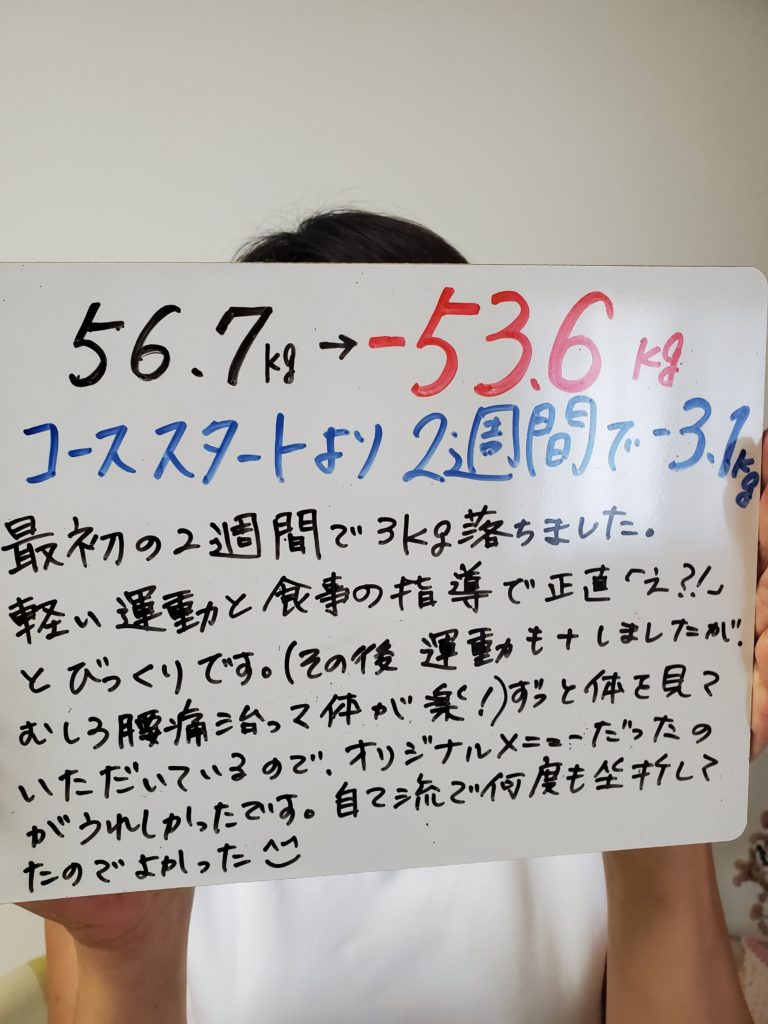 56.7kg→-53.6kg
コーススタートより2週間で-3.1kg
最初の2週間で3kg落ちました。
軽い運動と食事の指導で正直「え?!」
とびっくりです。(その後 運動も+しましたが、
むしろ腰痛治って体が楽!)ずっと体を見て
いただいているので、オリジナルメニューだったの
がうれしかったです。自て流で何度も坐折して
たのでよかった^^